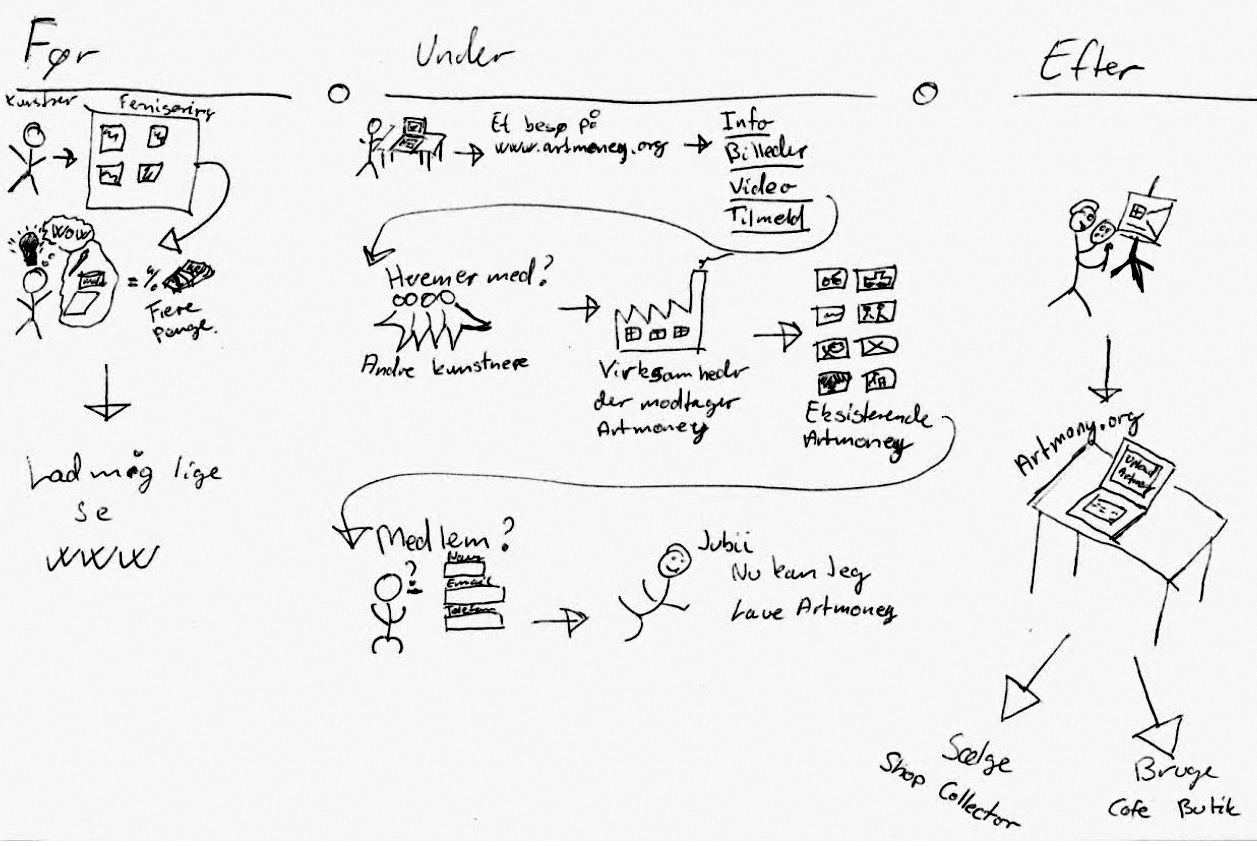 Før
Kunstner
Fernisering
WOW
= %
Flere
penge.
Lad mig lige
se
www
Under
Et besøg på
www.artmoney.org
Info
Billeder
Video
Tilmeld
Hvem er med?
Andre kunstnere
Virksomheder
der modtager
Artmoney
Eksisterende
Artmoney
Medlem?
?
Navn
Email
Telefon
Jubii
Nu kan Jeg
Lave Artmoney
Efter
Artmony.org
Upload
Artmoney
Sælge
Shop Collector
Bruge
Cafe Butik